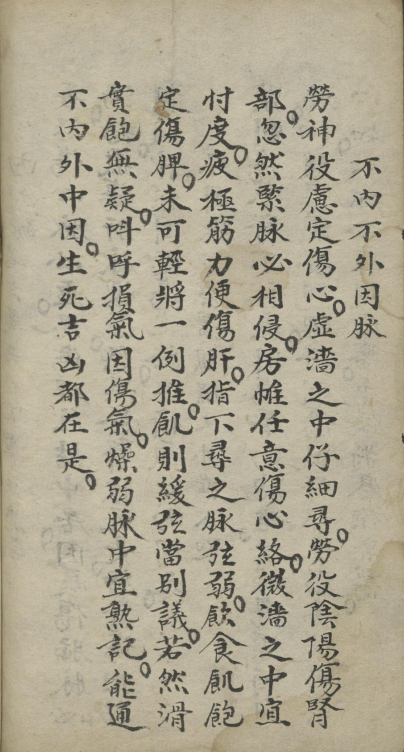 不内不外因脉
勞神役慮定傷心。虚濇之中仔細尋。勞役陰陽傷腎
部。忽然緊脉必相侵。房帷任意傷心絡。微濇之中宜
忖度。疲極筋力便傷肝。指下尋之脉弦弱。飲食飢飽
定傷脾。未可輕將一例推。飢則緩弦當别議。若然滑
實飽無疑。呌呼損氣因傷氣。燥弱脉中宜熟記。能通
不内外中因。生死吉凶都在是。